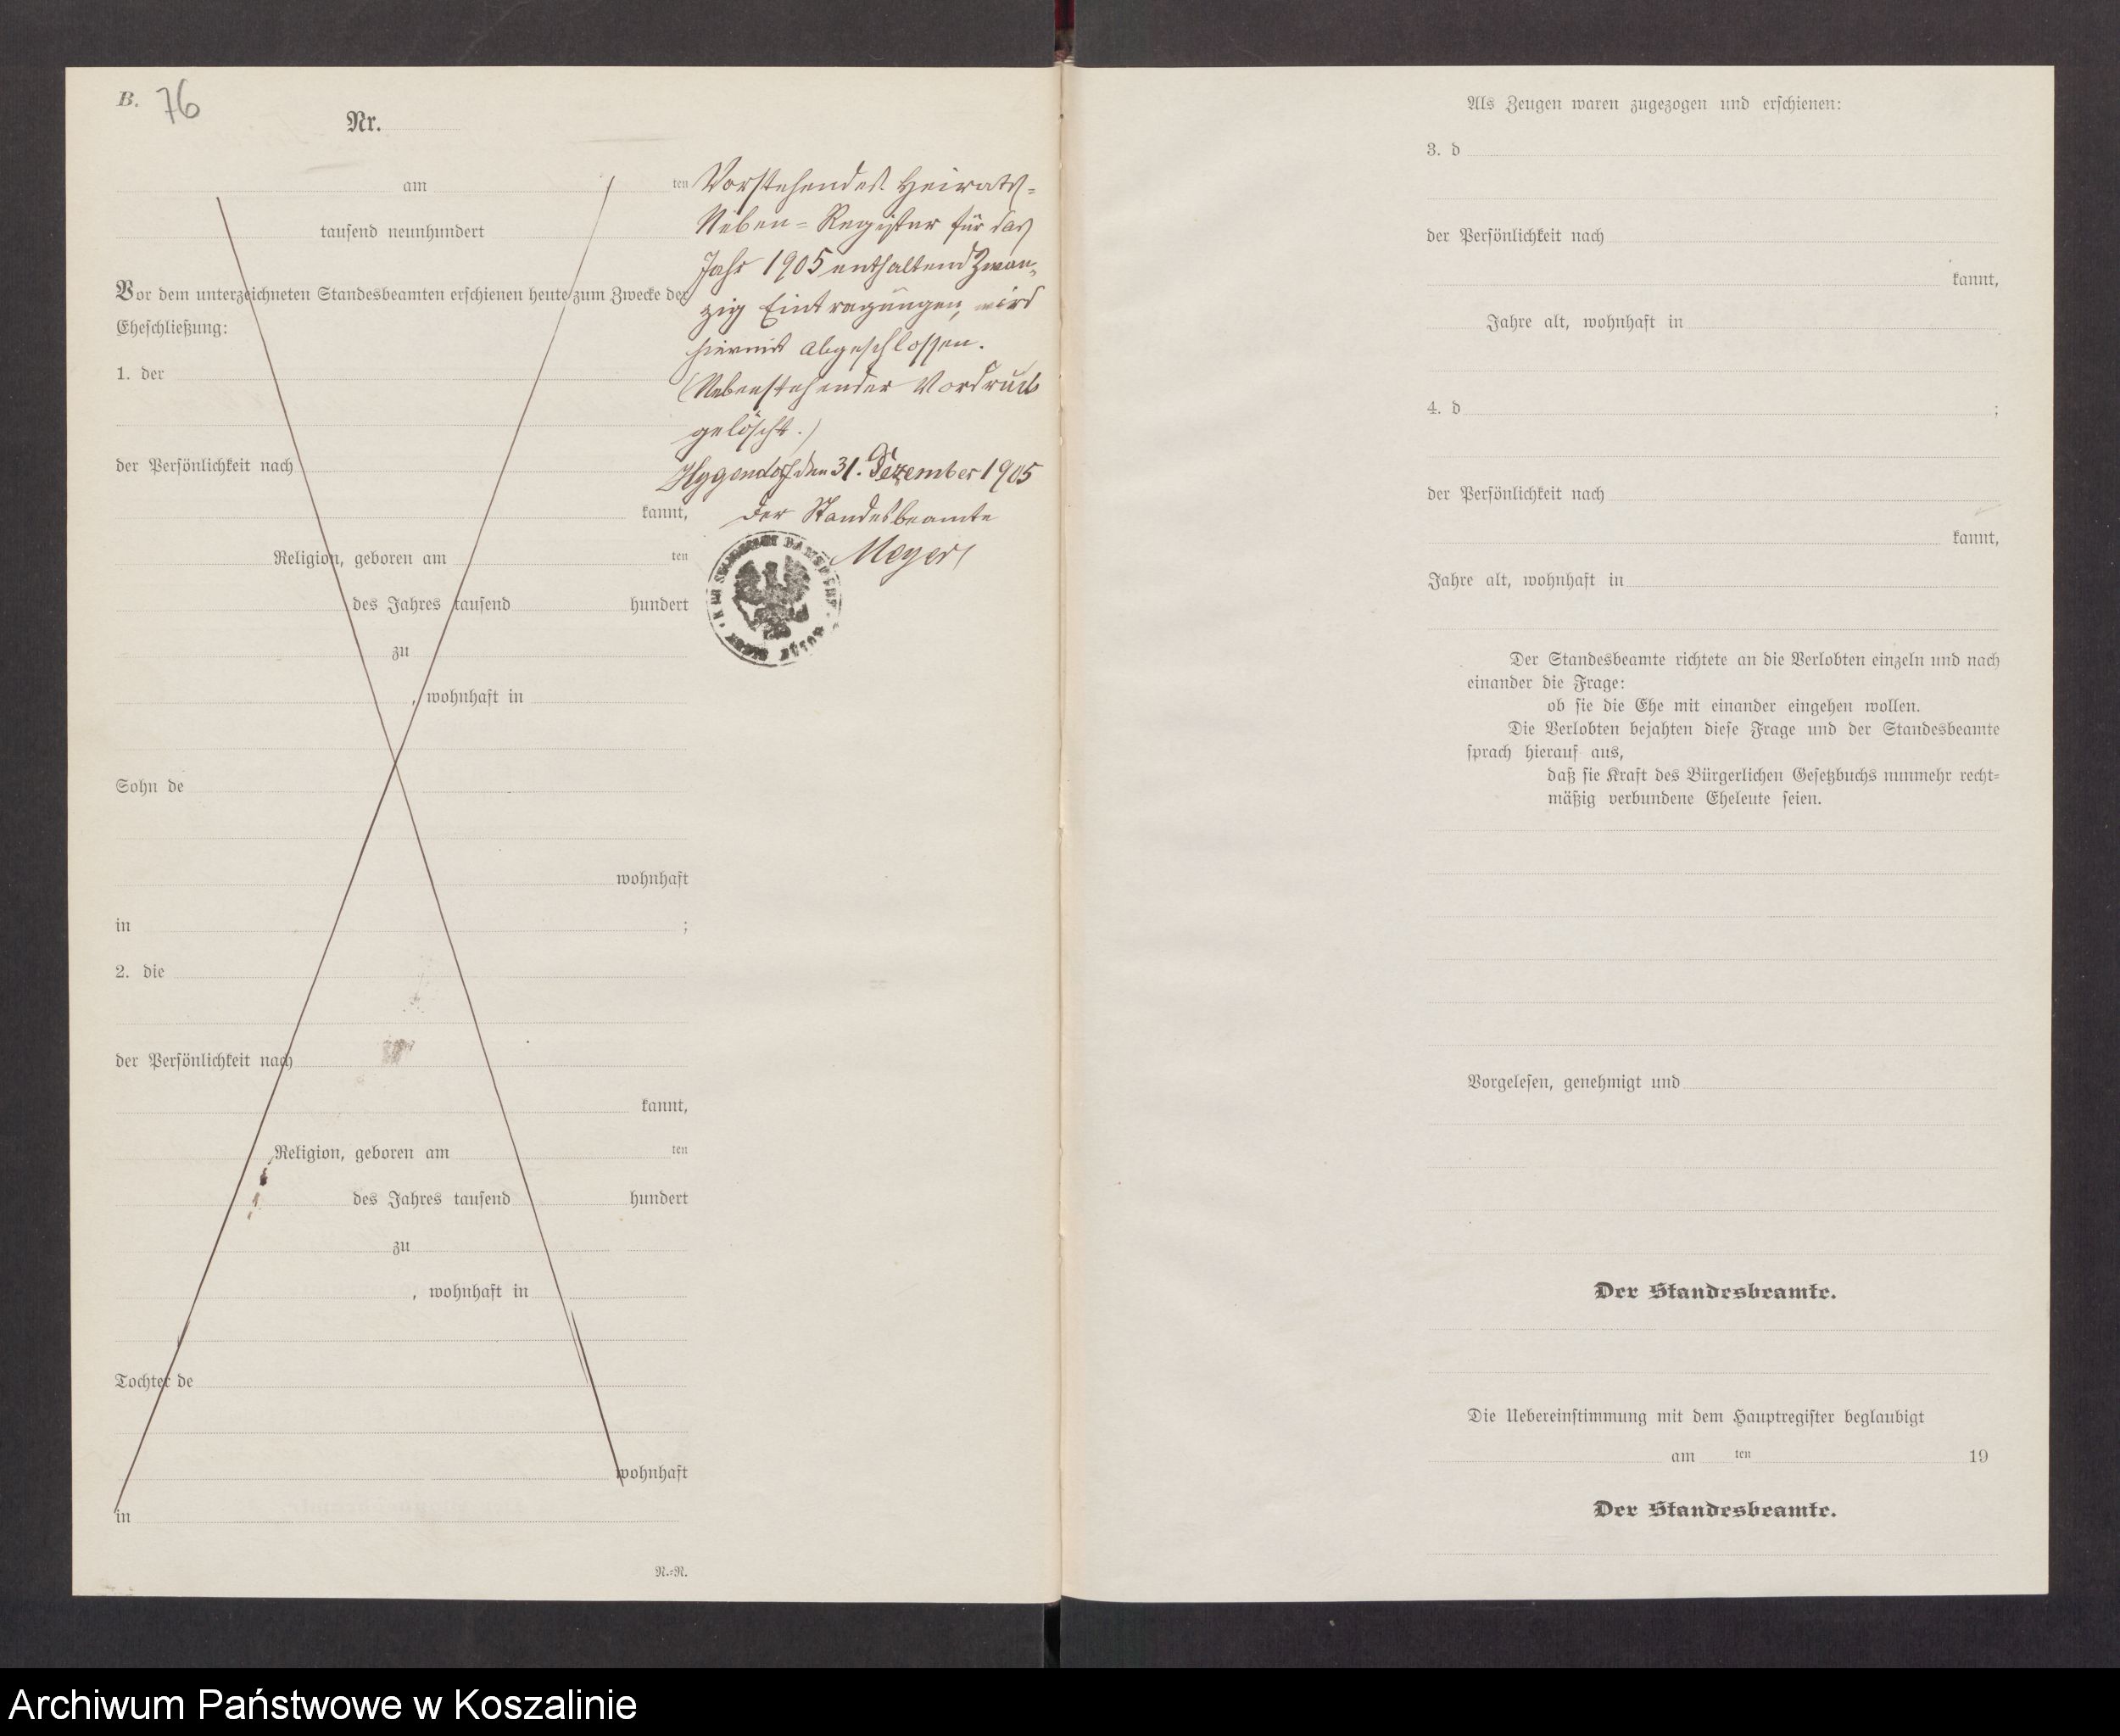 B. 76
Nr.
am ten
tausend neunhundert
Vor dem unterzeichneten Standesbeamten erschienen heute zum Zwecke der
Eheschließung:
1. der
der Persönlichkeit nach
kannt,
Religion, geboren am ten
des Jahres tausend hundert
zu
, wohnhaft in
Sohn de
wohnhaft
in ;
2. die
der Persönlichkeit nach
kannt,
Religion, geboren am ten
des Jahres tausend hundert
zu
, wohnhaft in
Tochter de
wohnhaft
in
N.=R.
Vorstehendes Heirats=
Neben=Register für das
Jahr 1905 enthaltend Zwan=
zig Eintragungen, wird
hiermit abgeschlossen.
(Nebenstehender Vordruck
gelöscht.)
den 31. Dezember 1905
Der Standesbeamte
Meyer
Als Zeugen waren zugezogen und erschienen:
3. d
der Persönlichkeit nach
kannt,
Jahre alt, wohnhaft in
4. d ;
der Persönlichkeit nach
kannt,
Jahre alt, wohnhaft in
Der Standesbeamte richtete an die Verlobten einzeln und nach
einander die Frage:
ob sie die Ehe mit einander eingehen wollen.
Die Verlobten bejahten diese Frage und der Standesbeamte
sprach hierauf aus,
daß sie Kraft des Bürgerlichen Gesetzbuchs nunmehr recht=
mäßig verbundene Eheleute seien.
Vorgelesen, genehmigt und
Der Standesbeamte.
Die Uebereinstimmung mit dem Hauptregister beglaubigt
am ten 19
Der Standesbeamte.
Archiwum Państwowe w Koszalinie